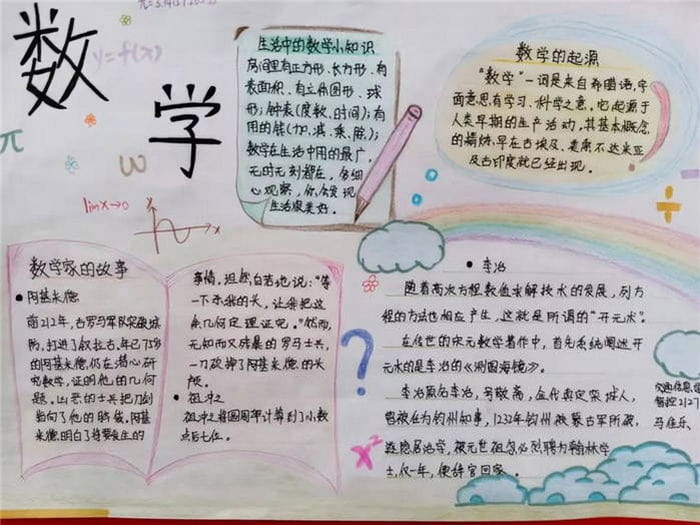 π=3.1415926
数学
y=f(x)
π
ω
lim x→0
y
x
生活中的数学小知识
房间里有正方形、长方形、有
表面积、有立体图形、球
形;钟表(度数、时间);有
用的钱(加、减、乘、除);
数学在生活中用的最广,
无时无刻都在,多细
心观察,你会发现
生活很美好。
数学的起源
“数学”一词是来自希腊语,字
面意思有学习、科学之意。它起源于
人类早期的生产活动,其基本概念
的精炼,早在古埃及、美索不达米亚
及古印度就已经出现。
数学家的故事
• 阿基米德
前212年,古罗马军队突破城
防,打进了叙拉古,年已75岁
的阿基米德,仍在潜心研
究数学,证明他的几何
题。凶恶的士兵把刀剑
指向了他的脖颈。阿基
米德明白了将要发生的
事情,坦然自若地说:“等
一下杀我的头,让我把这
条几何定理证完。”然而,
无知而又残暴的罗马士兵,
一刀砍掉了阿基米德的头
颅。
• 祖冲之
祖冲之将圆周率计算到了小数
点后七位。
?
x²
÷
• 李冶
随着高次方程数值求解技术的发展,列方
程的方法也相应产生,这就是所谓的“开元术”。
在传世的宋元数学著作中,首先系统阐述开
元水的是李冶的《测圆海镜》。
李冶原名李治,号敬斋,金代真定栾城人,
曾被任为钧州知事,1232年钧州被蒙古军所破,
遂隐居治学,被元世祖忽必烈聘为翰林学
士,仅一年,便辞官回家。
交通信息
智控2127
马佳乐